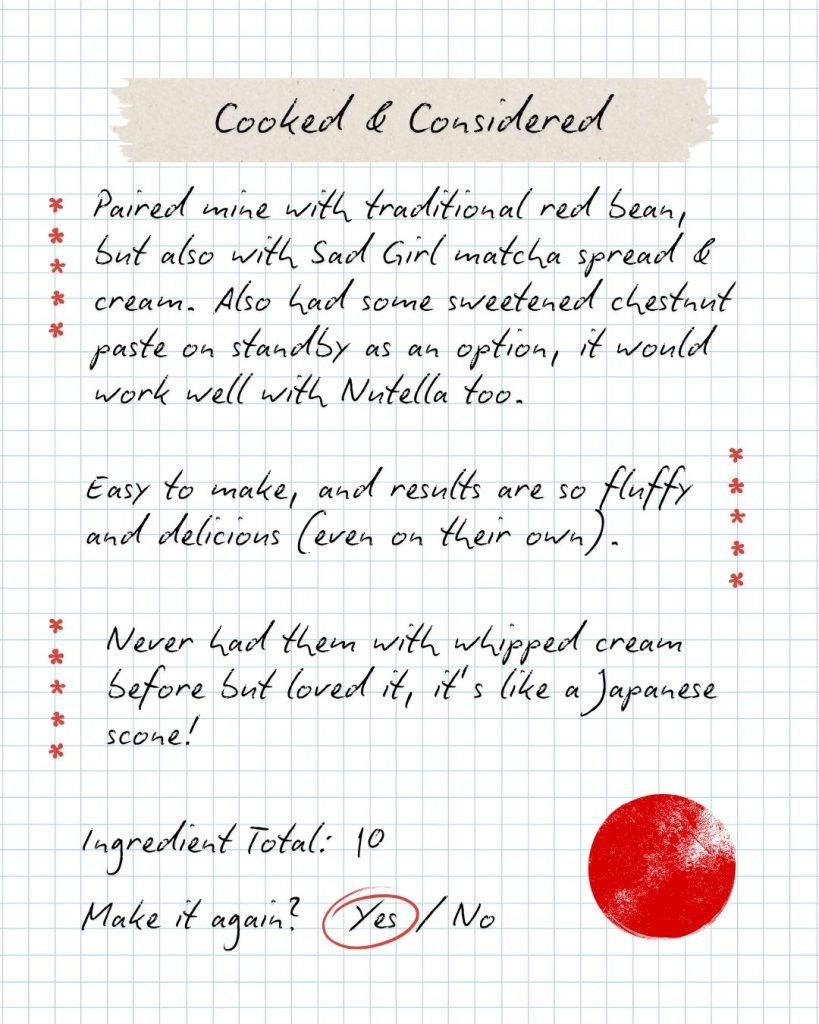 Cooked & Considered
Paired mine with traditional red bean,
but also with Sad Girl matcha spread &
cream. Also had some sweetened chestnut
paste on standby as an option, it would
work well with Nutella too.
Easy to make, and results are so fluffy
and delicious (even on their own).
Never had them with whipped cream
before but loved it, it's like a Japanese
scone!
Ingredient Total: 10
Make it again? Yes / No